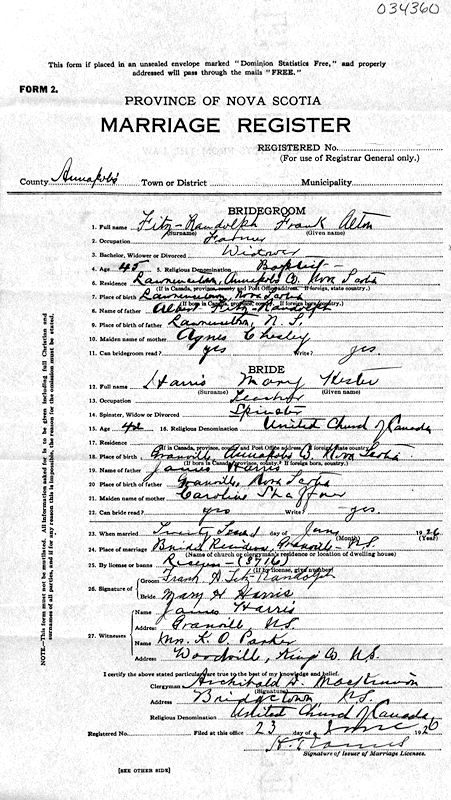 034360
This form if placed in an unsealed envelope marked "Dominion Statistics Free," and properly
addressed will pass through the mails "FREE."
FORM 2.
PROVINCE OF NOVA SCOTIA
MARRIAGE REGISTER
REGISTERED No.
(For use of Registrar General only.)
County Annapolis Town or District Municipality
BRIDEGROOM
1. Full name Fitz-Randolph Frank Alton
(Surname) (Given name)
2. Occupation Farmer
3. Bachelor, Widower or Divorced Widower
4. Age 45 5. Religious Denomination Baptist
6. Residence Lawrencetown, Annapolis Co. Nova Scotia
(If in Canada, province, county and Post Office address. If foreign, state country.)
7. Place of birth Lawrencetown, Nova Scotia
(If born in Canada, province, county. If foreign born, country.)
8. Name of father Albert Fitz-Randolph
9. Place of birth of father Lawrencetown, N.S.
10. Maiden name of mother Agnes Chesley
11. Can bridegroom read? yes Write? yes.
BRIDE
12. Full name Harris Mary Hester
(Surname) (Given name)
13. Occupation Teacher
14. Spinster, Widow or Divorced Spinster
15. Age 42 16. Religious Denomination United Church of Canada
17. Residence
(If in Canada, province, county and Post Office address. If foreign, state country.)
18. Place of birth Granville Annapolis Co Nova Scotia
(If born in Canada, province, county. If foreign born, country.)
19. Name of father James Harris
20. Place of birth of father Granville, Nova Scotia
21. Maiden name of mother Caroline Shaffner
22. Can bride read? yes Write? yes.
23. When married Twenty Second day of June 1926
(Month) (Year)
24. Place of marriage Brides Residence, Granville N.S.
(Name of church or clergyman's residence or location of dwelling house)
25. By license or banns License (8716)
(If by license, give number)
26. Signature of Groom Frank A Fitz-Randolph
Bride Mary H Harris
27. Witnesses Name James Harris
Address Granville, N.S.
Name Mrs. K. O. Parker
Address Woodville, Kings Co. N.S.
I certify the above stated particulars are true to the best of my knowledge and belief.
Clergyman Archibald D. MacKinnon
(Signature)
Address Bridgetown N.S.
Religious Denomination United Church of Canada
Registered No. Filed at this office 23 day of June 1926
Signature of Issuer of Marriage Licenses.
[SEE OTHER SIDE]
NOTE—This form must not be mutilated. All information asked for is to be given including full Christian and
surnames of all parties, and if for any reason this is impossible, the reason for the omission must be stated.